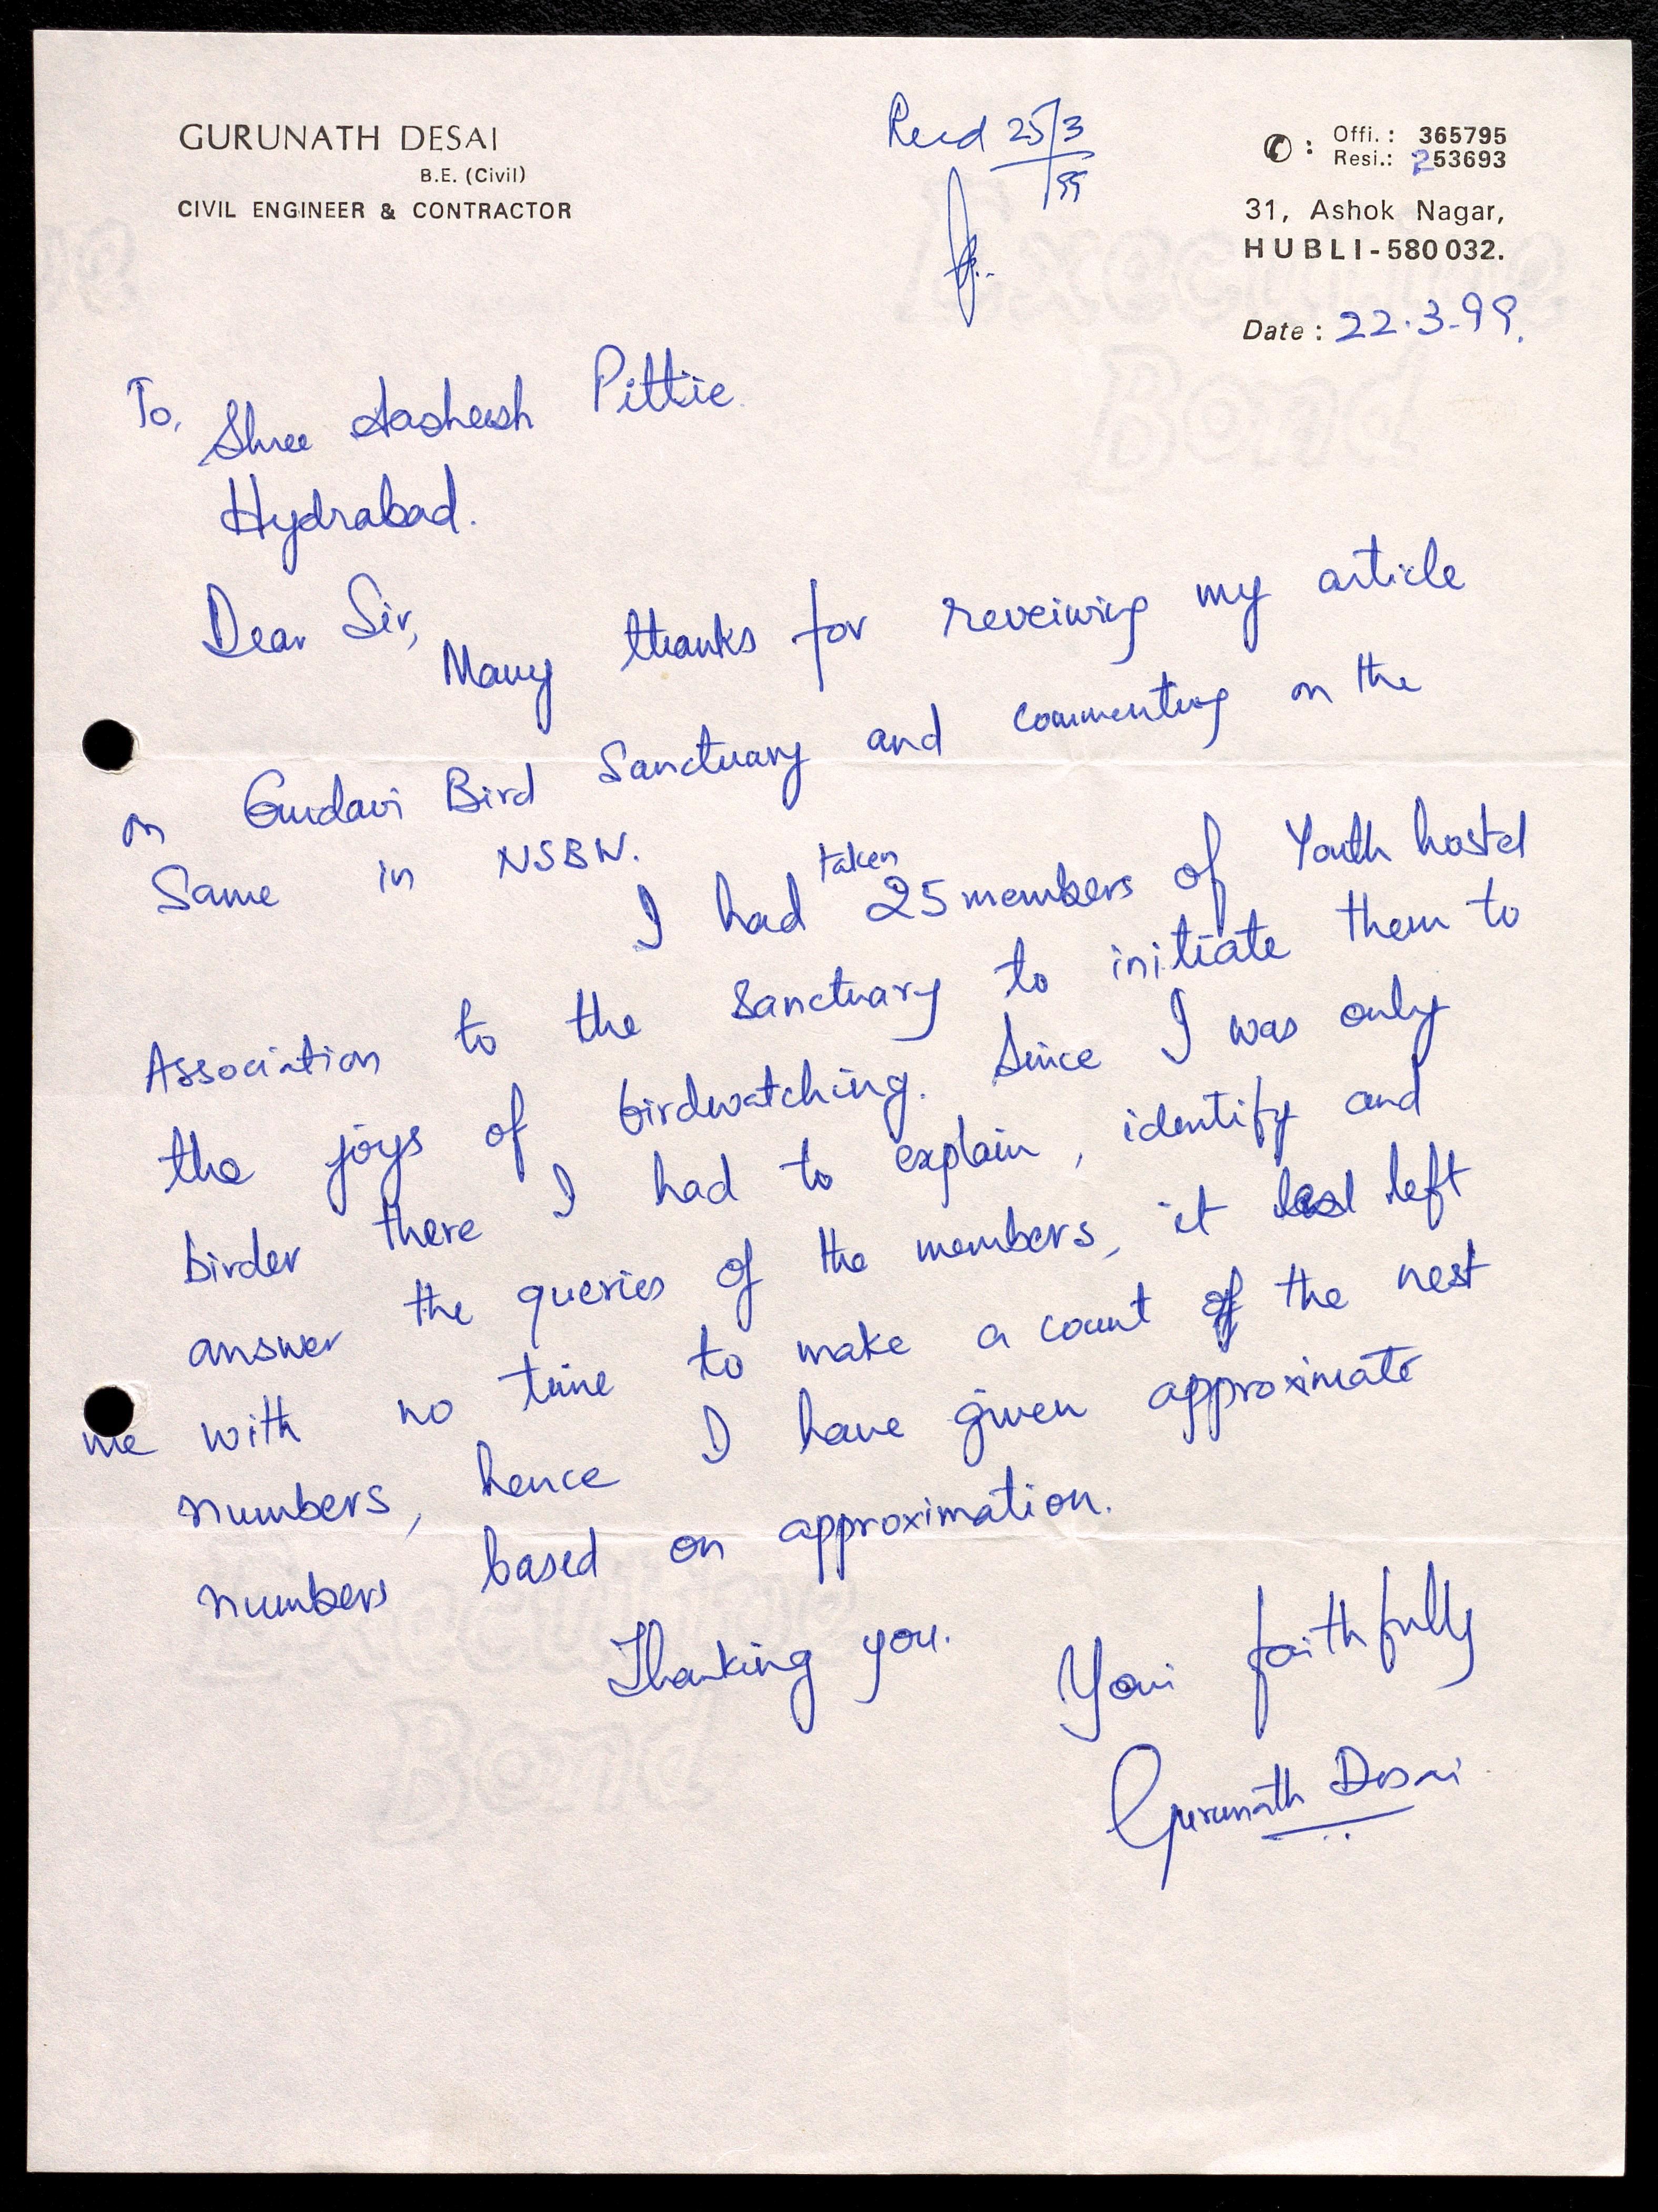 GURUNATH DESAI
B.E. (Civil)
CIVIL ENGINEER & CONTRACTOR
Recd 25/3/99
✆ : Offi. : 365795
Resi.: 253693
31, Ashok Nagar,
HUBLI-580 032.
Date : 22.3-99.
To,
Shree Aasheesh Pittie.
Hydrabad.
Dear Sir,
Many thanks for reveiwing my article
on Gudavi Bird Sanctuary and commenting on the
Same in NSBW.
I had taken 25 members of Youth hostel
Association to the Sanctuary to initiate them to
the joys of birdwatching. Since I was only
birder there I had to explain, identify and
answer the queries of the members, it left
me with no time to make a count of the nest
numbers, hence I have given approximate
numbers based on approximation.
Thanking you.
Your faithfully
Gurunath Desai
Executive
Bond
Executive
Bond